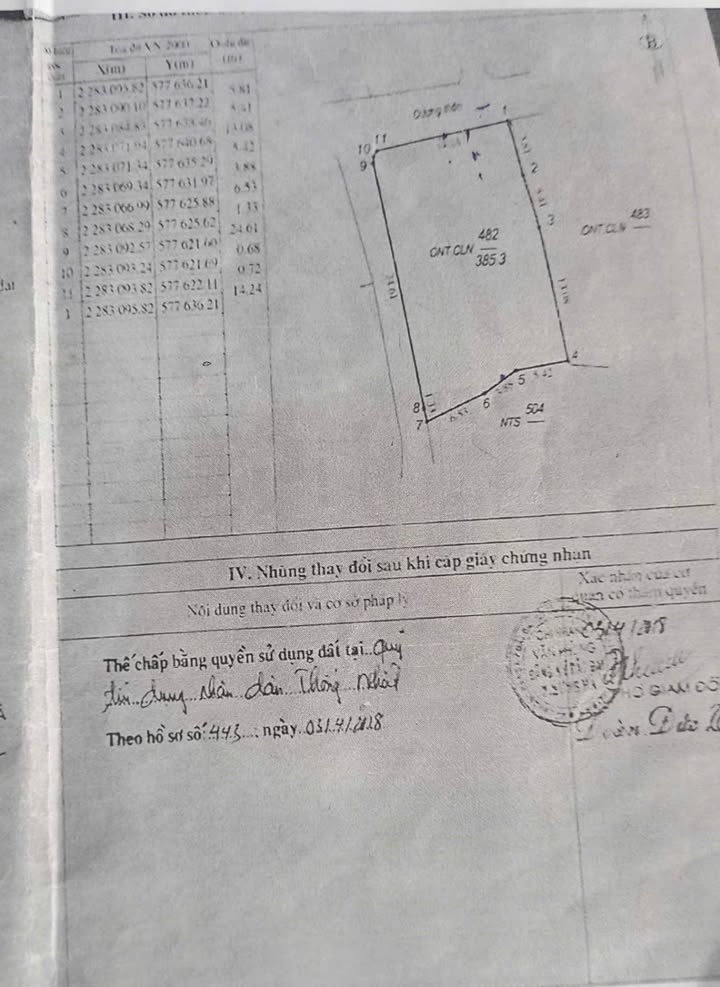 Tọa độ VN 2000
X(m) Y(m)
1 2 283 095.82 577 636.21 5.81
2 2 283 090.10 577 637.22 5.41
3 2 283 084.83 577 638.46 13.08
4 2 283 071.94 577 640.68 5.42
5 2 283 071.34 577 635.29 3.88
6 2 283 069.34 577 631.97 6.53
7 2 283 066.99 577 625.88 1.33
8 2 283 068.29 577 625.62 24.61
9 2 283 092.57 577 621.60 0.68
10 2 283 093.24 577 621.69 0.72
11 2 283 093.82 577 622.11 14.24
1 2 283 095.82 577 636.21
B
1
11
10
9
2
3
483
ONT CLN
482
ONT CLN
385.3
24.61
13.08
4
5
5.42
6
8
7
6.53
504
NTS
IV. Những thay đổi sau khi cấp giấy chứng nhận
Nội dung thay đổi và cơ sở pháp lý
Xác nhận của cơ
quan có thẩm quyền
Thế chấp bằng quyền sử dụng đất tại Quỹ
tín dụng nhân dân Thống Nhất
Theo hồ sơ số: 443 ; ngày 03/4/2018
03/4/2018
PHÓ GIÁM ĐỐC
Đoàn Đức